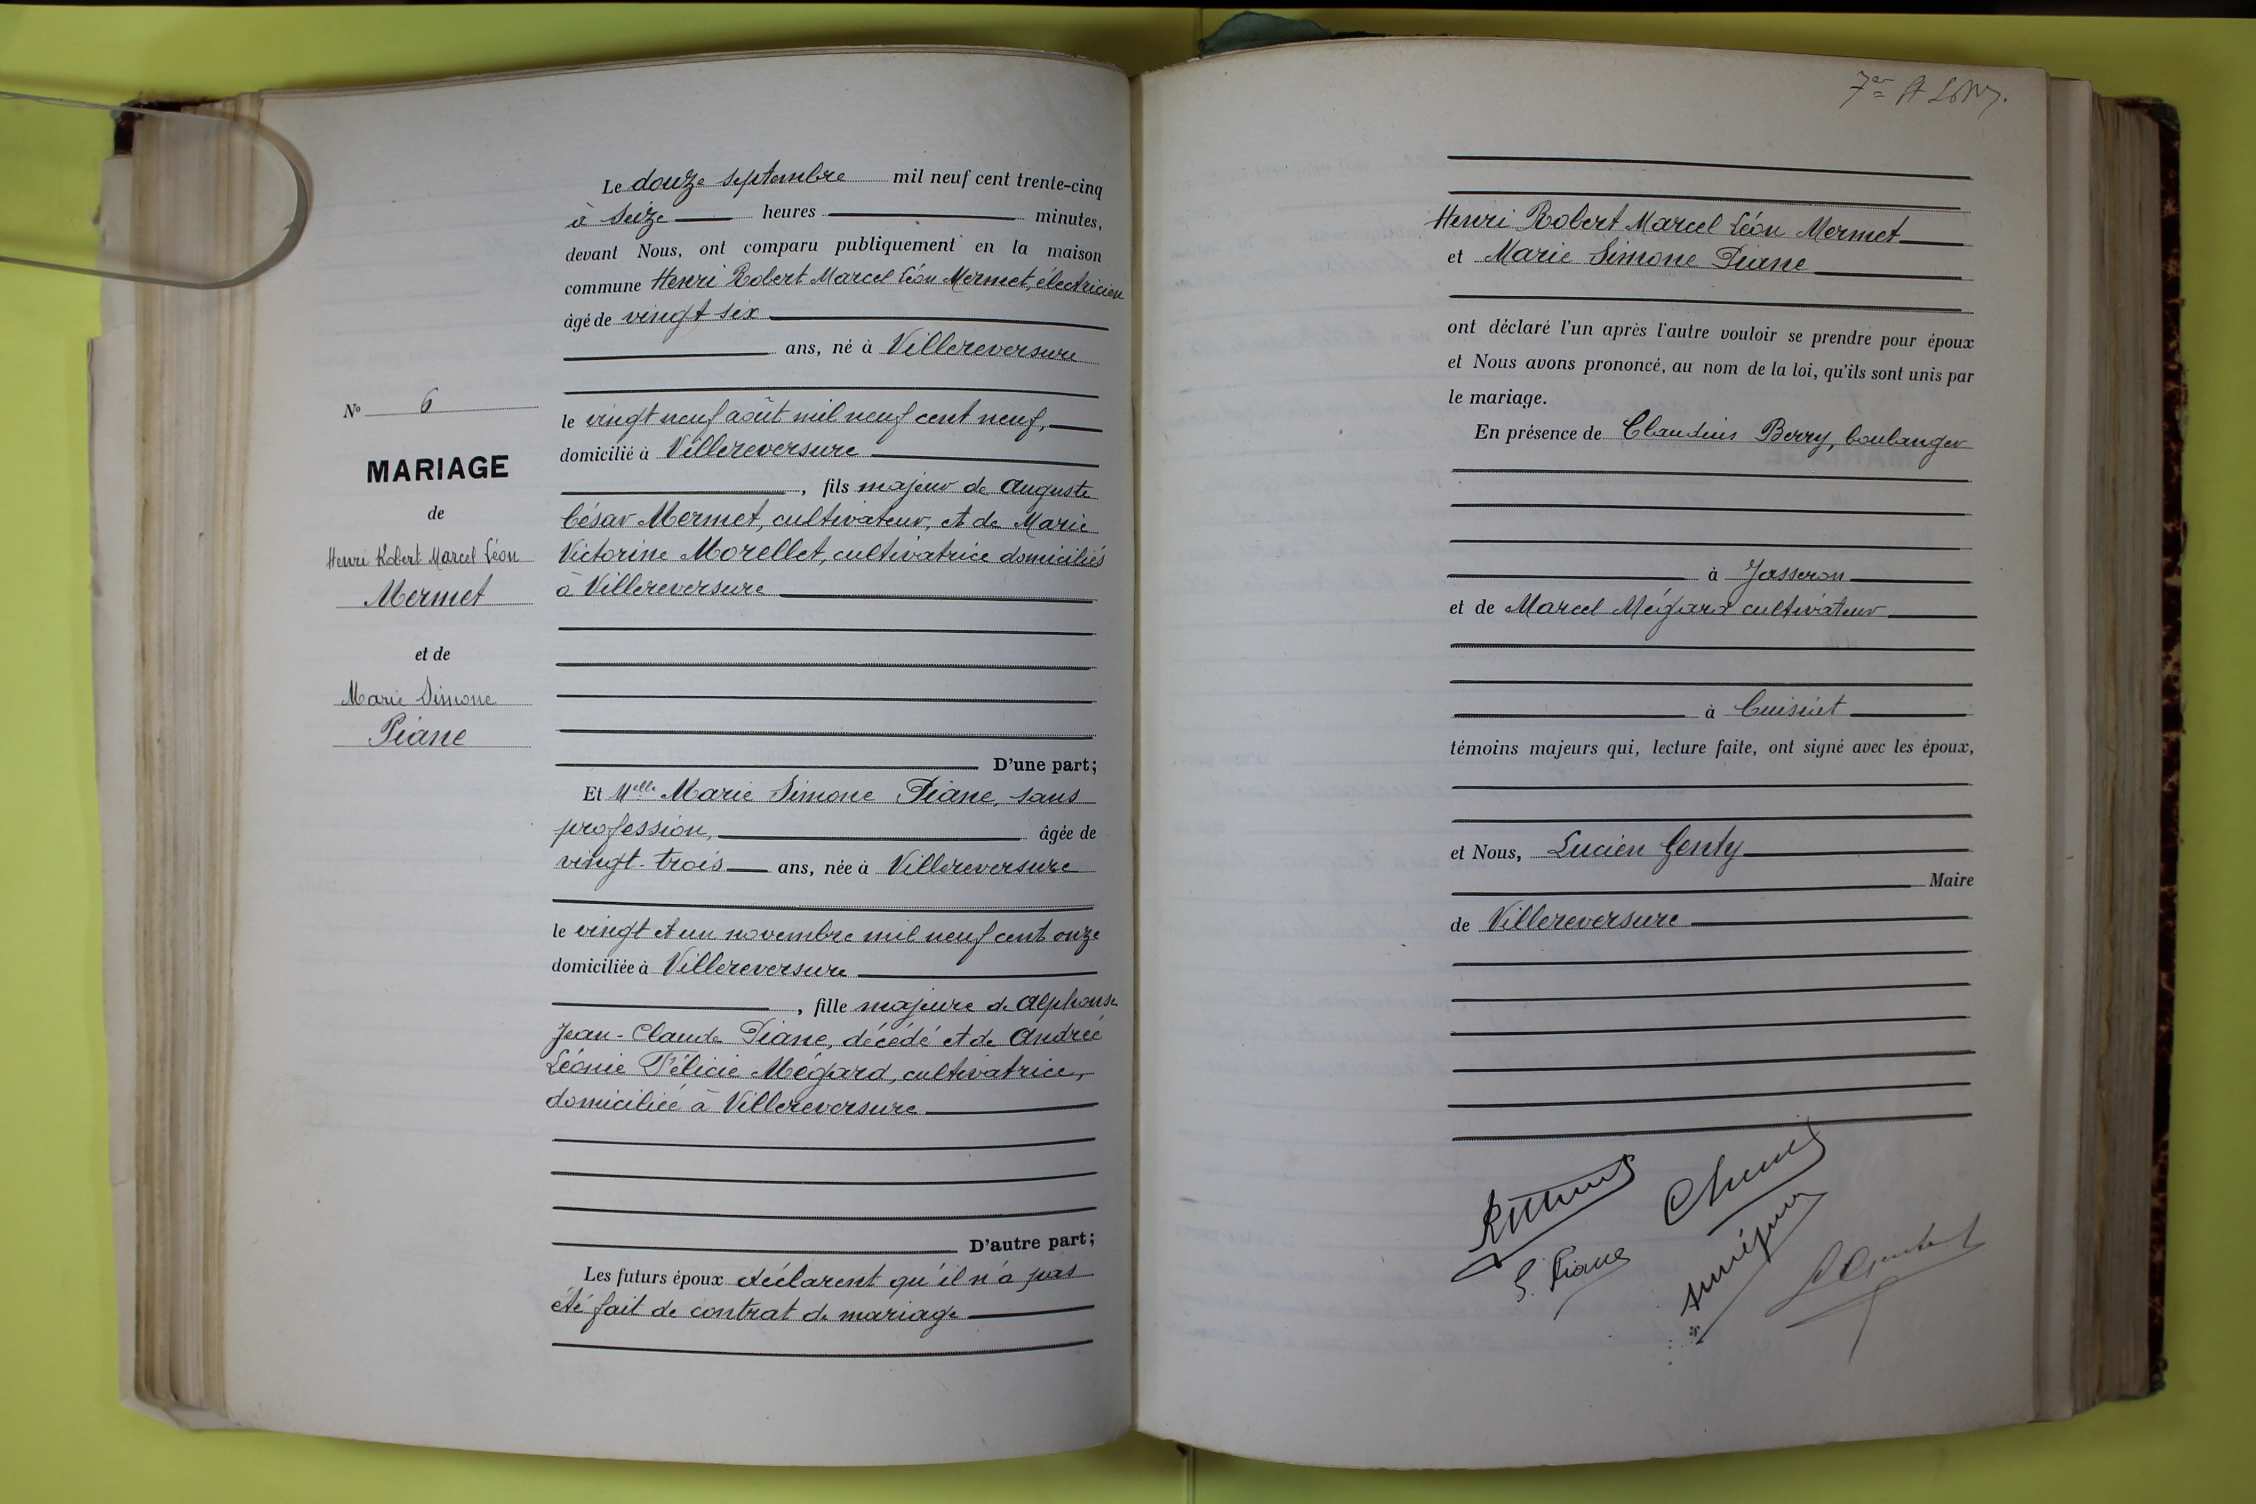 Le douze septembre mil neuf cent trente-cinq
à seize heures minutes,
devant Nous, ont comparu publiquement en la maison
commune Henri Robert Marcel Léon Mermet, électricien
âgé de vingt six
ans, né à Villereversure
N° 6
le vingt neuf août mil neuf cent neuf,
domicilié à Villereversure
MARIAGE
, fils majeur de Auguste
de
César Mermet, cultivateur, et de Marie
Henri Robert Marcel Léon
Victorine Morellet, cultivatrice domiciliés
Mermet
à Villereversure
et de
Marie Simone
Piane
D'une part;
Et Melle Marie Simone Piane, sans
profession, âgée de
vingt-trois ans, née à Villereversure
le vingt et un novembre mil neuf cent onze
domiciliée à Villereversure
, fille majeure de Alphonse
Jean-Claude Piane, décédé et de Andréé
Léonie Félicie Mégard, cultivatrice,
domiciliée à Villereversure
D'autre part;
Les futurs époux déclarent qu'il n'a pas
été fait de contrat de mariage
Henri Robert Marcel Léon Mermet
et Marie Simone Piane
ont déclaré l'un après l'autre vouloir se prendre pour époux
et Nous avons prononcé, au nom de la loi, qu'ils sont unis par
le mariage.
En présence de Claudius Berry, boulanger
à Jasseron
et de Marcel Mégard cultivateur
à Cuisiat
témoins majeurs qui, lecture faite, ont signé avec les époux,
et Nous, Lucien Genty
Maire
de Villereversure
S. Piane